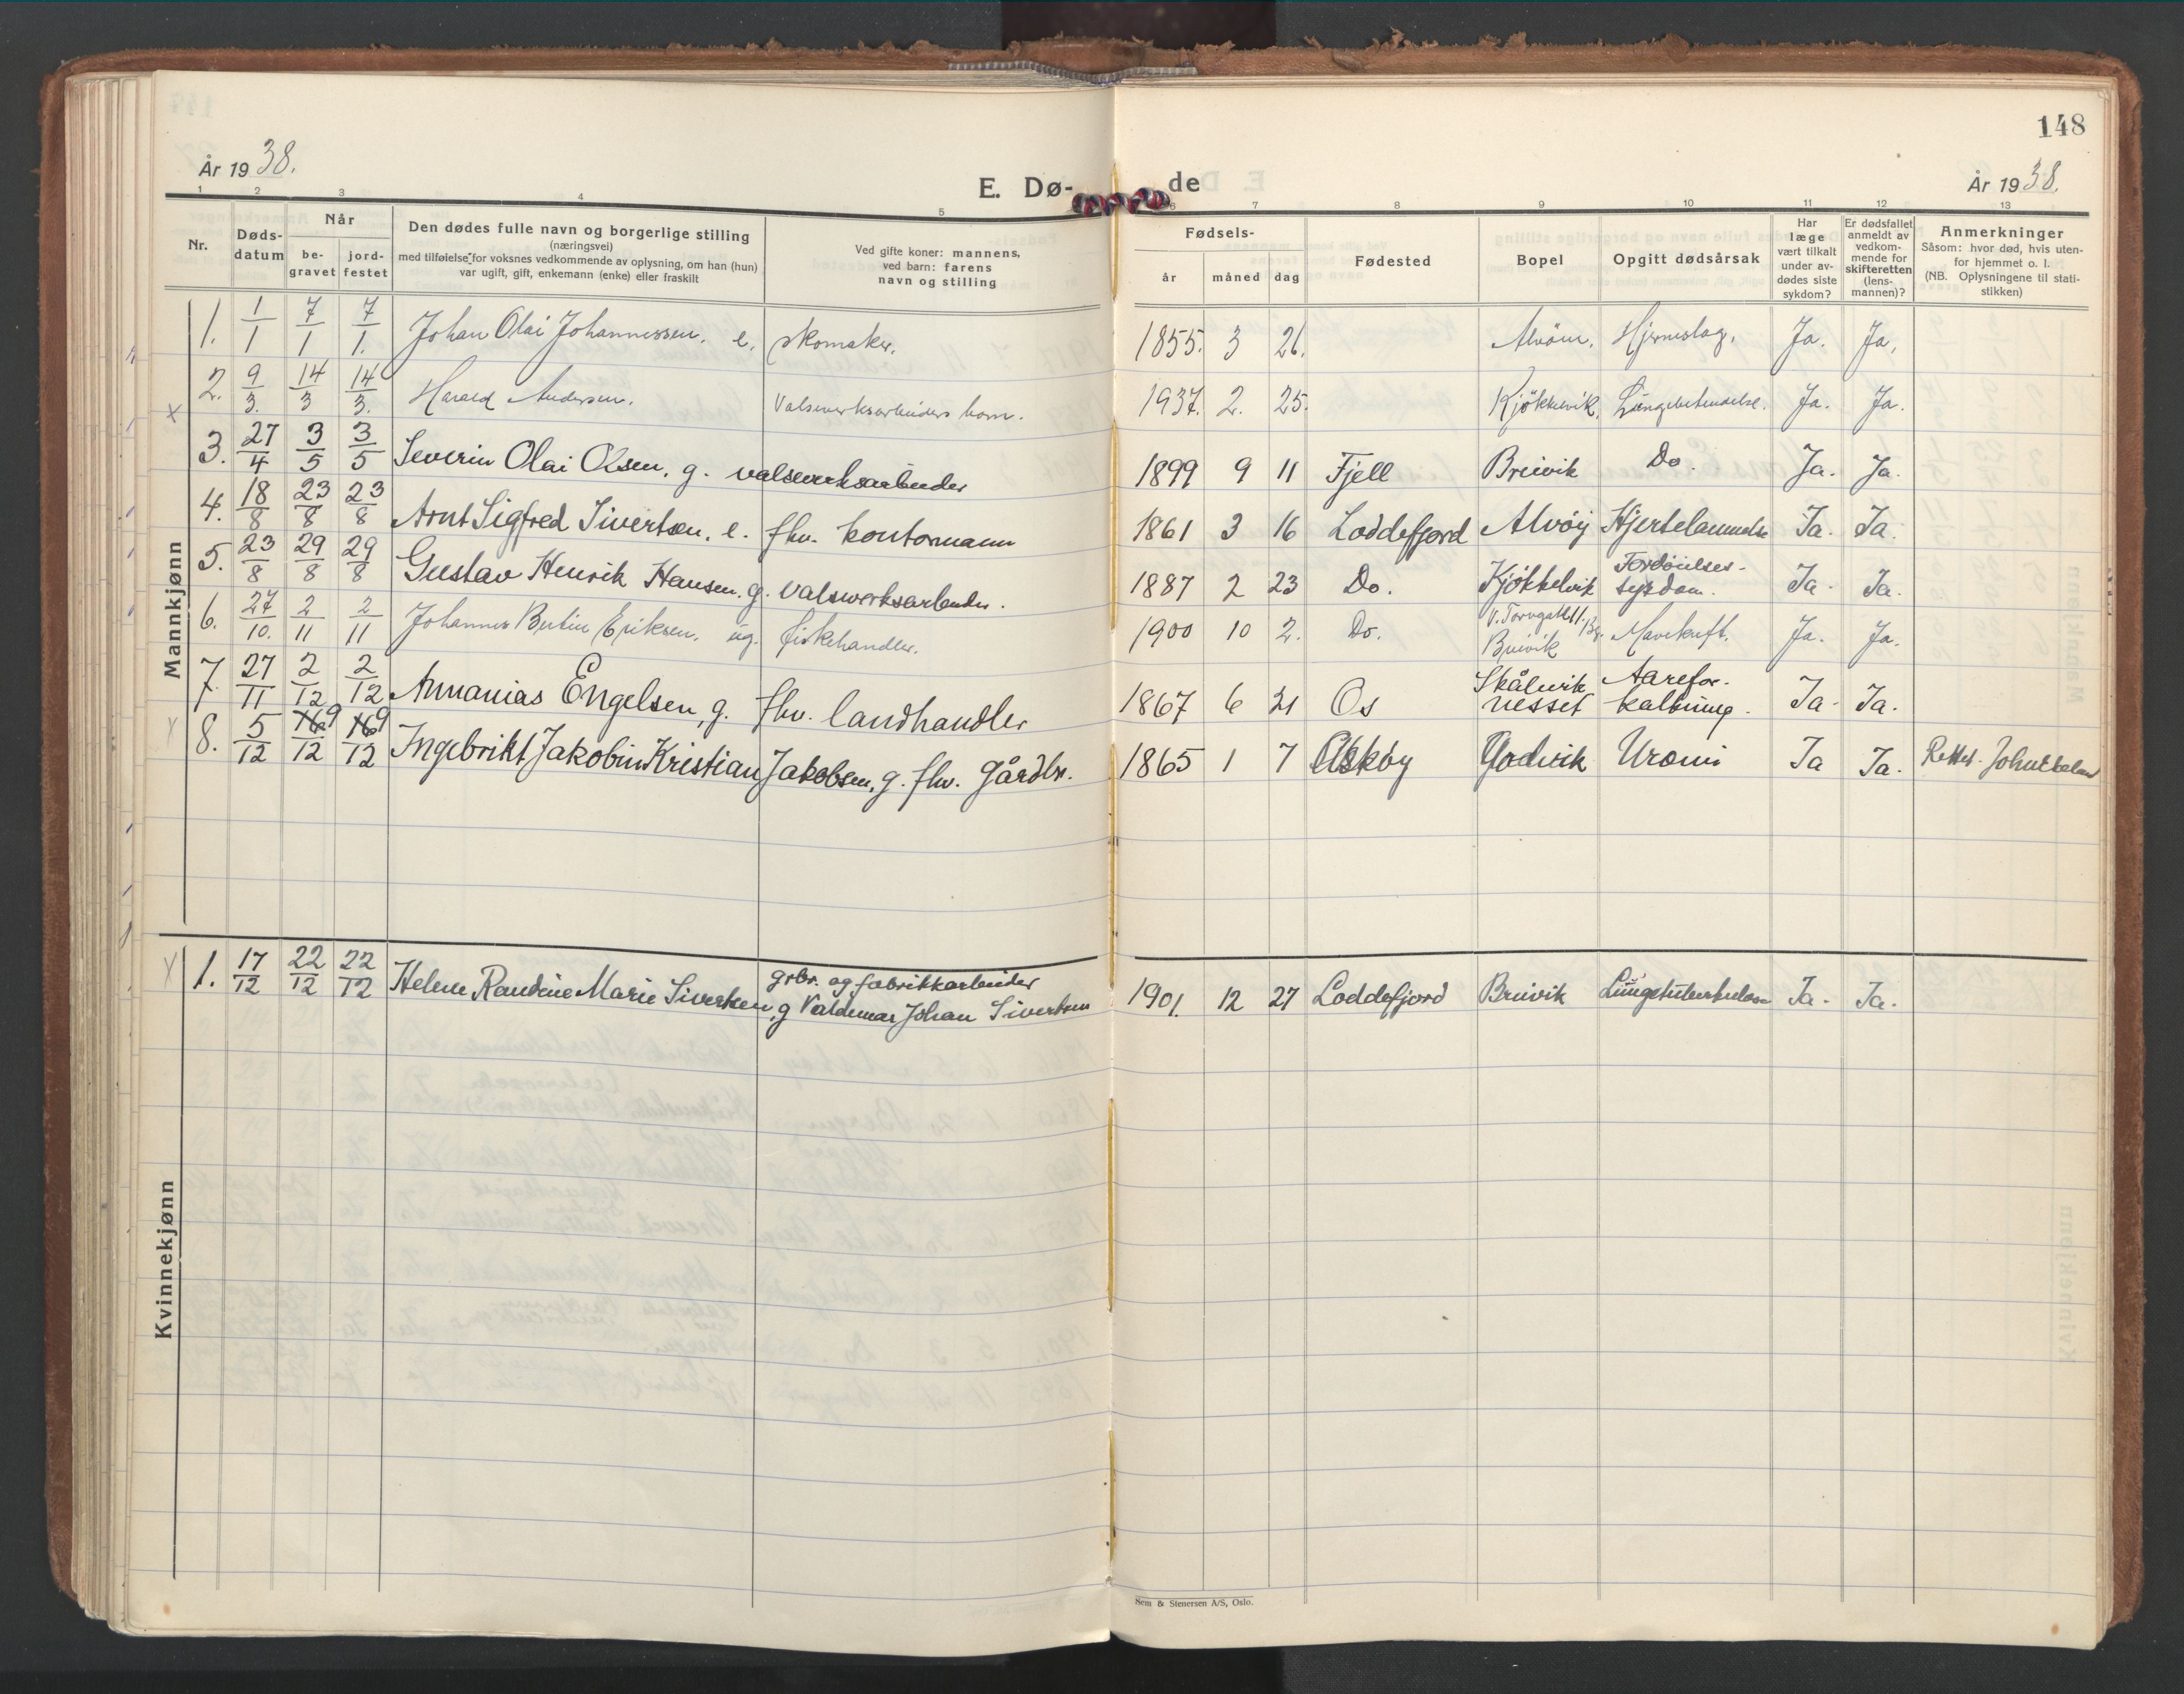 148
År 1938.
E. Dø-de
År 1938.
1 2 3 4 5 6 7 8 9 10 11 12 13
Nr.
Døds-
datum
Når
be-
gravet
jord-
festet
Den dødes fulle navn og borgerlige stilling
(næringsvei)
med tilføielse for voksnes vedkommende av oplysning, om han (hun)
var ugift, gift, enkemann (enke) eller fraskilt
Ved gifte koner: mannens,
ved barn: farens
navn og stilling
Fødsels-
år måned dag
Fødested
Bopel
Opgitt dødsårsak
Har
læge
vært tilkalt
under av-
dødes siste
sykdom?
Er dødsfallet
anmeldt av
vedkom-
mende for
skifteretten
(lens-
mannen)?
Anmerkninger
Såsom: hvor død, hvis uten-
for hjemmet o. l.
(NB. Oplysningene til stati-
stikken)
Mannkjønn
1. 1/1 7/1 7/1. Johan Olai Johannessen. e. skomaker. 1855. 3 26. Alvöen. Hjerneslag. Ja. Ja.
x 2. 9/3. 14/3 14/3. Harald Andersen. Valsewerksarbeiders barn. 1937. 2. 25. Kjökkelvik. Lungebetendelse. Ja. Ja.
3. 27/4 3/5 3/5 Severin Olai Olsen, g. valseverksarbeider 1899 9 11 Fjell Breivik Do. Ja. Ja.
4. 18/8 23/8 23/8 Arnt Sigfred Sivertsen, e. fhv. kontormann 1861 3 16 Loddefjord Alvöy Hjertelammelse Ja. Ja.
5. 23/8 29/8 29/8 Gustav Henrik Hansen, g. valsverksarbeider. 1887 2 23 Do. Kjøkkelvik Fordöielses-
sykdom. Ja. Ja.
6. 27/10. 2/11 2/11 Johannes Bertin Eriksen. ug. fiskehandler. 1900 10 2. Do. V. Torvgaten 1. Bg.
Breivik Mavekreft. Ja. Ja.
7. 27/11 2/12 2/12 Annanias Engelsen, g. fhv. landhandler 1867 6 21 Os Skålevik
nesset Aarefor-
kalkning. Ja. Ja.
8. 5/12 9/12 9/12 Ingebrikt Jakobin Kristian Jakobsen, g. fhv. gårdbr. 1865 1 7 Askøy Godvik Uremi Ja Ja. Rettet.
Kvinnekjønn
x 1. 17/12 22/12 22/12 Helene Randine Marie Sivertsen, g grbr. og fabrikkarbeider
Valdemar Johan Sivertsen 1901. 12 27 Loddefjord Breivik Lungetuberkulose Ja. Ja.
Sem & Stenersen A/S, Oslo.